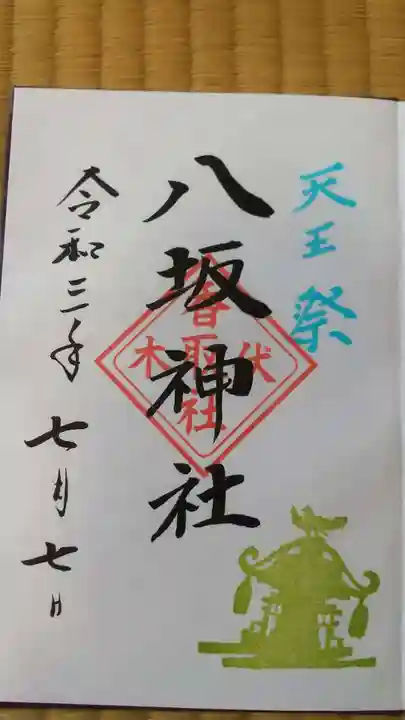 天王祭
八坂神社
香取社
伏木
令和三年七月七日